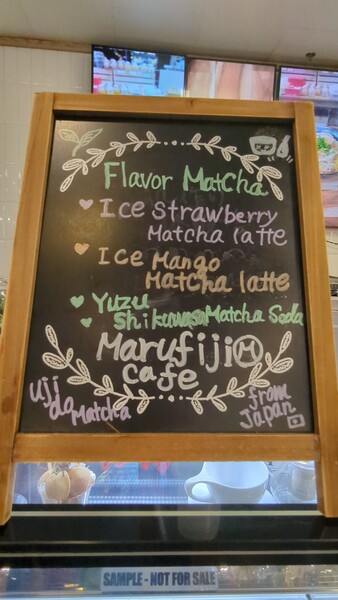 Flavor Matcha
Ice strawberry
Matcha latte
Ice Mango
Matcha latte
Yuzu
Shikuwasa Matcha Soda
Marufiji M
cafe
Uji
Matcha
from
Japan
SAMPLE - NOT FOR SALE